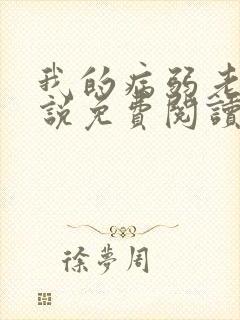 我的病弱老
說免費閱讀
徐夢周